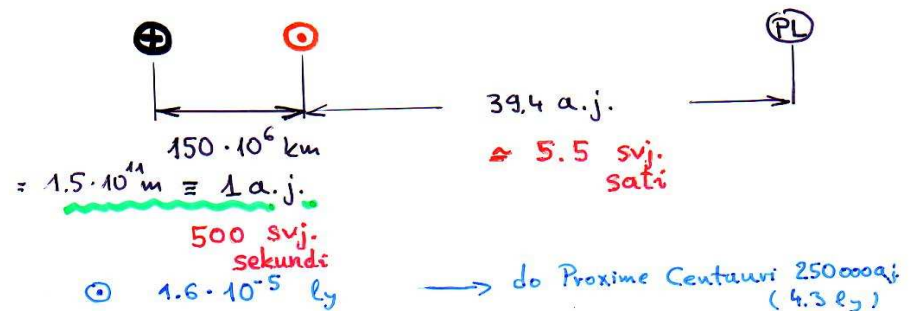 PL
39,4 a.j.
150 · 10⁶ km
≃ 5.5 svj.
sati
= 1.5 · 10¹¹ m ≡ 1 a.j.
500 svj.
sekundi
☉ 1.6 · 10⁻⁵ ly → do Proxime Centauri 250000 aj
(4.3 ly)